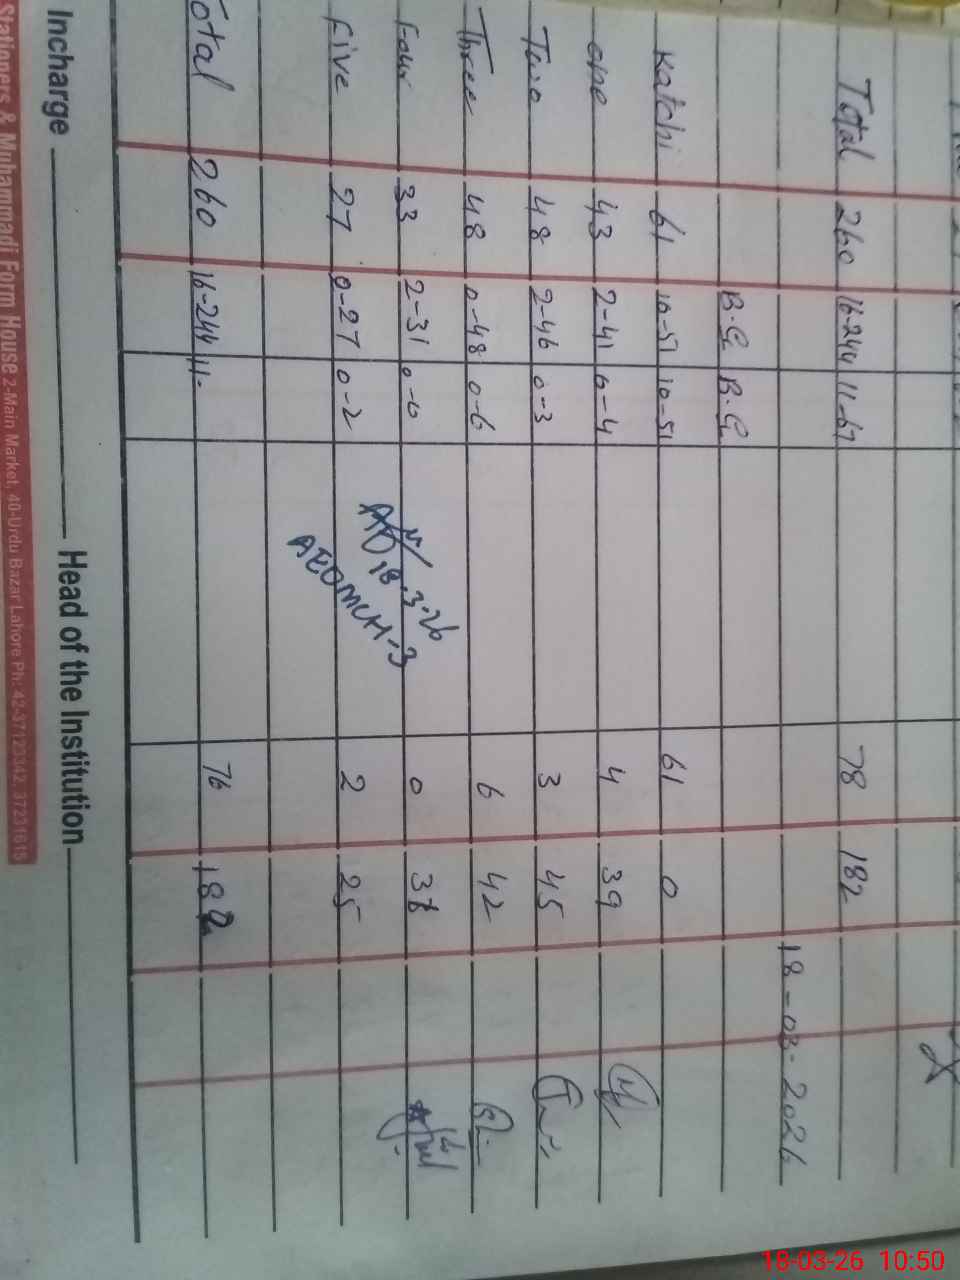 Total 260 16-244 11-67 78 182
18-03-2026
B.G B.G
Katchi 61 10-51 10-51 61 0
one 43 2-41 0-4 4 39
Two 48 2-46 0-3 3 45
Three 48 0-48 0-6 6 42
Four 33 2-31 0-0 0
Five 27 0-27 0-2 2 25
18.3.26
AEOMCH-3
Total 260 16-244 11- 76 182
Incharge Head of the Institution
Stationers & Muhammadi Form House 2-Main Market, 40-Urdu Bazar Lahore Ph: 42-37123342, 37231615
18-03-26 10:50